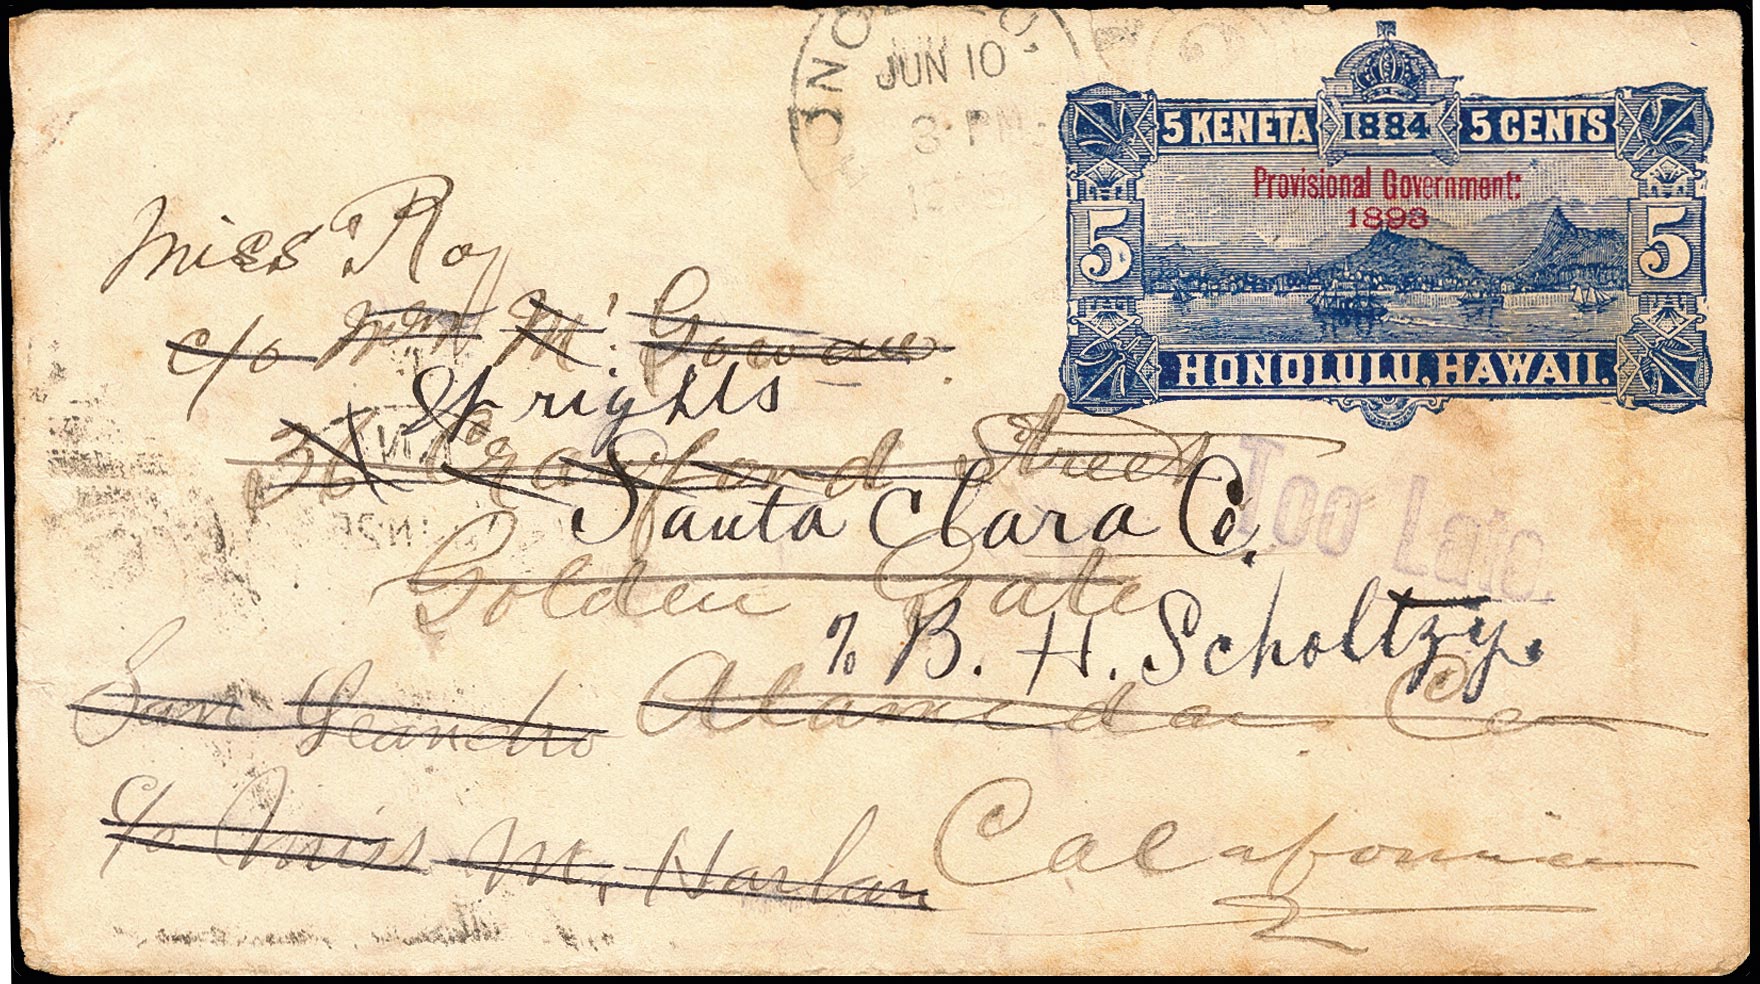 JUN 10
3 PM
5 KENETA 1884 5 CENTS
Provisional Government:
1893
5 5
HONOLULU, HAWAII.
Miss Roy
c/o Mrs Mc Gowan
Wrights
36 Crawford Street
Santa Clara Co.
Too Late.
Golden Gate
% B. H. Scholtzy.
San Leandro Alameda Co
c/o Miss M. Harlan California